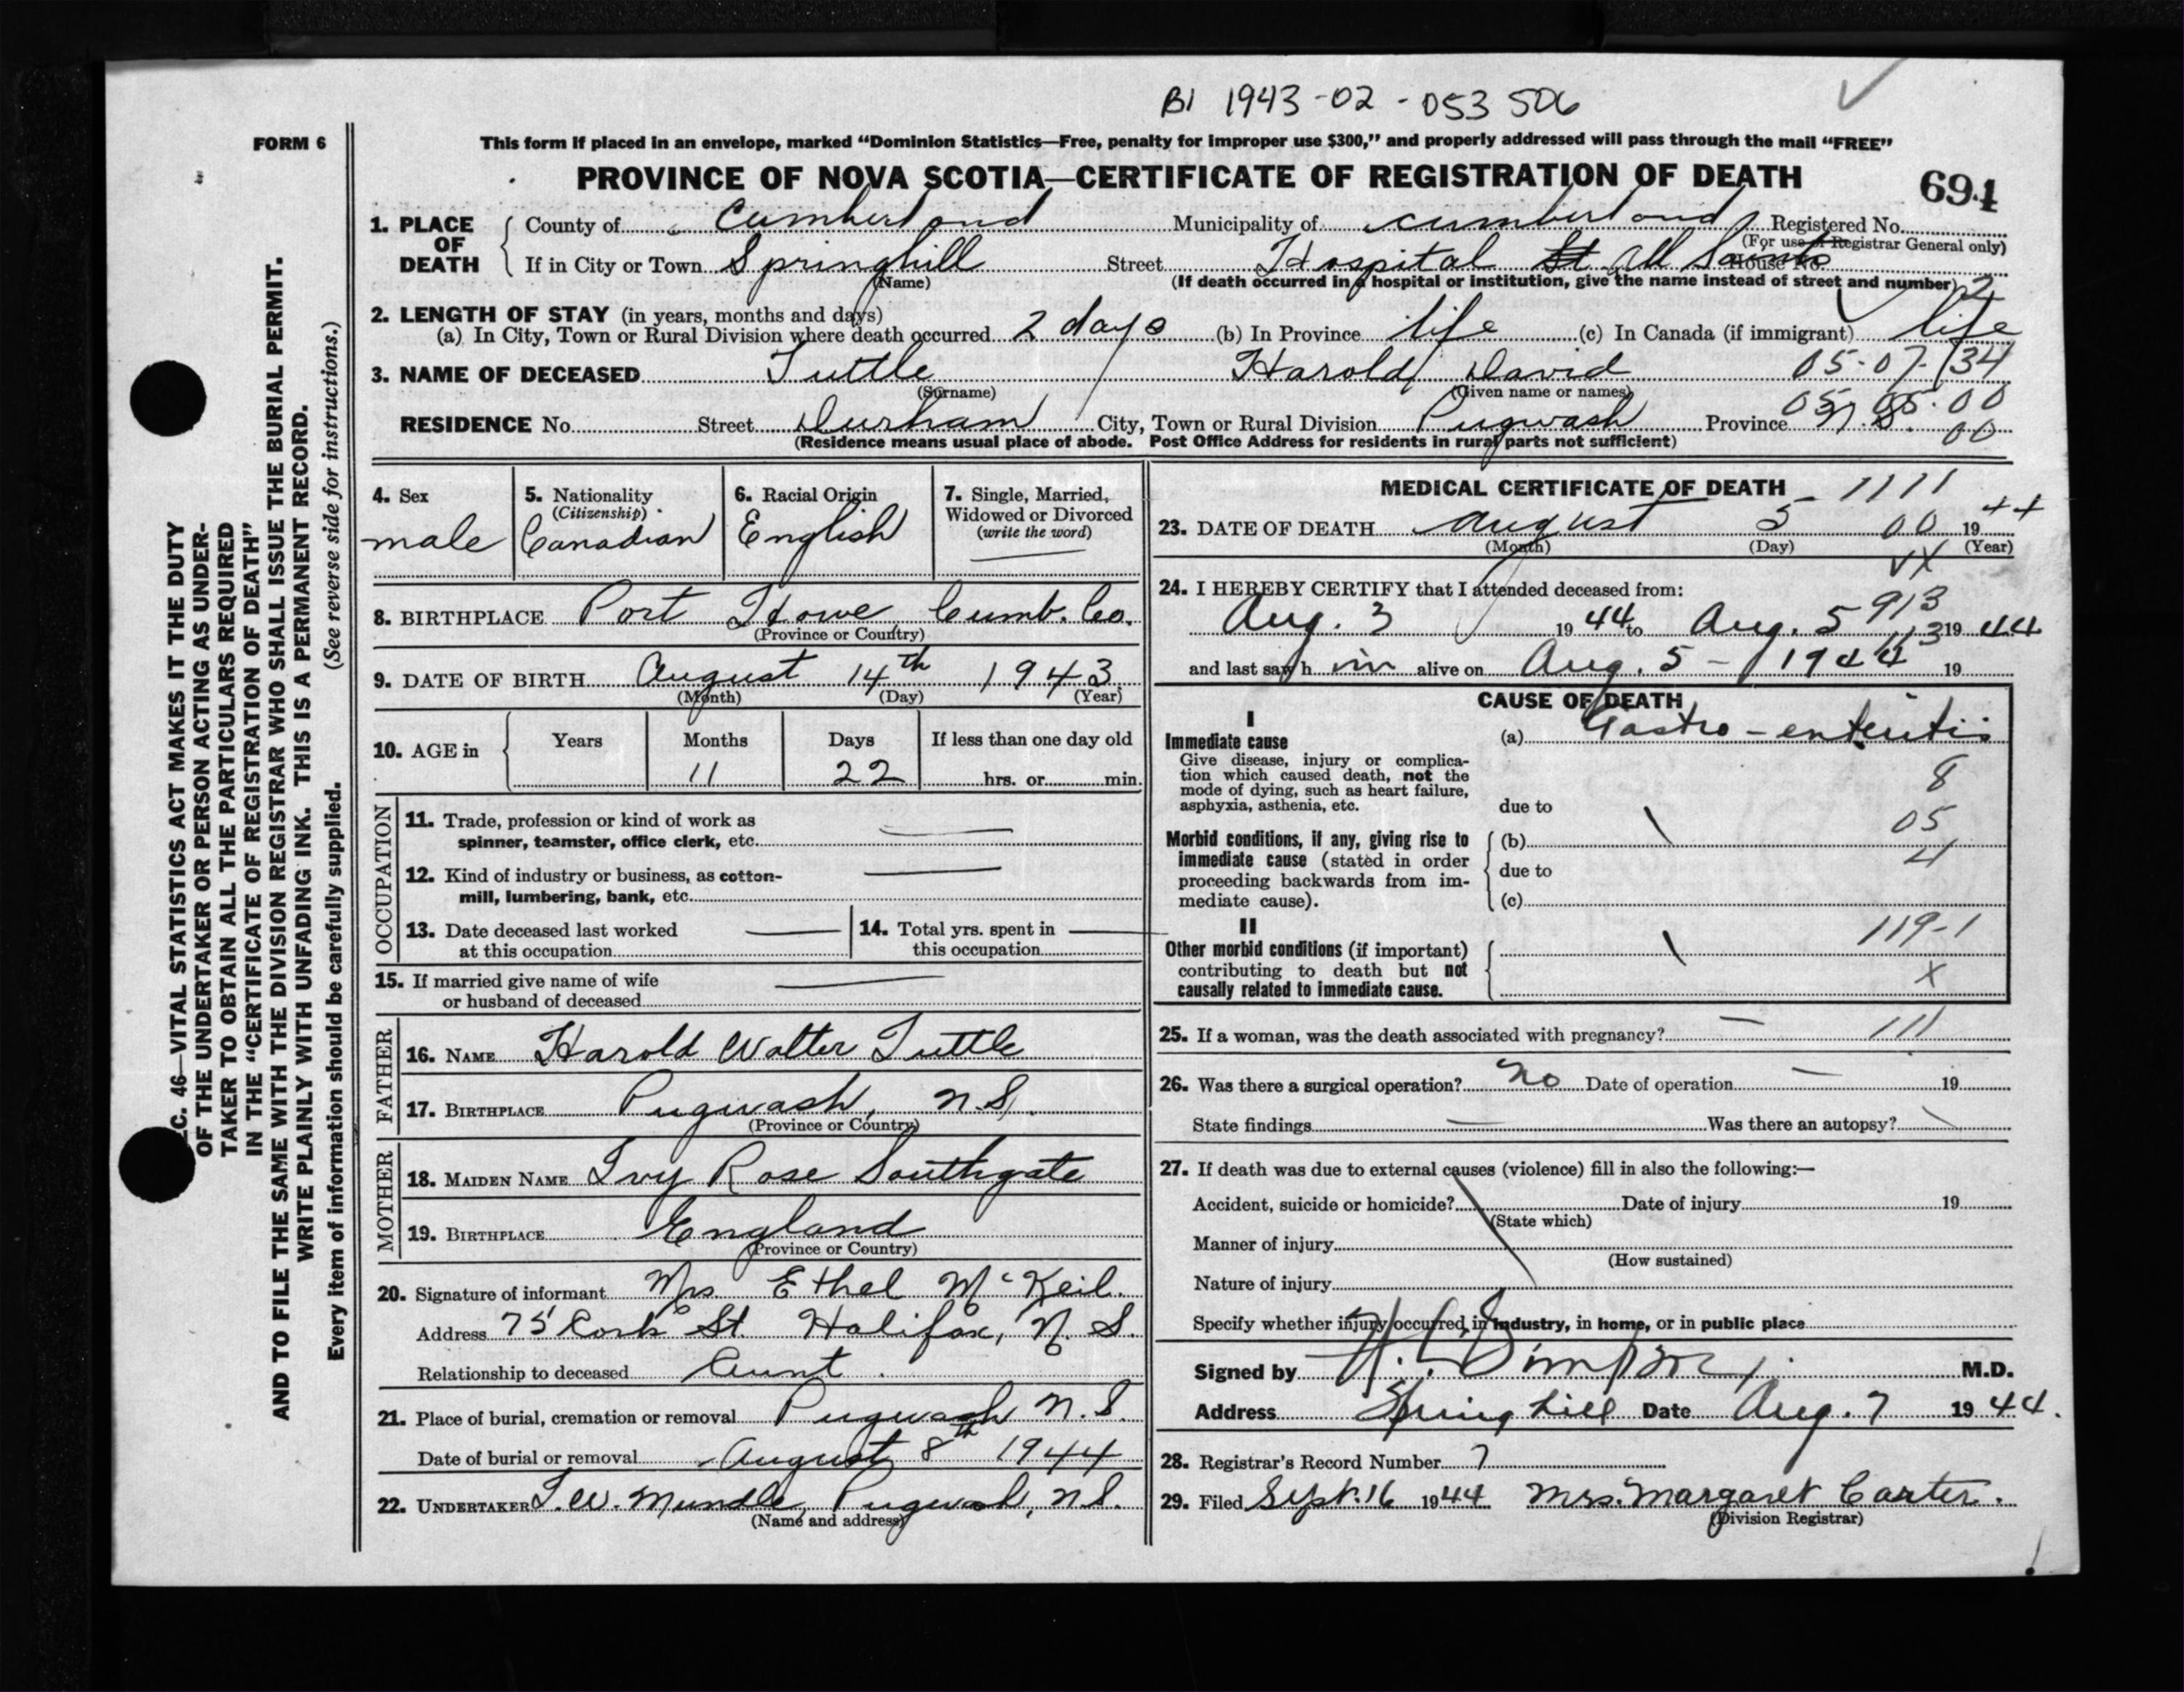 B1 1943-02-053506
FORM 6
This form if placed in an envelope, marked “Dominion Statistics—Free, penalty for improper use $300,” and properly addressed will pass through the mail “FREE”
PROVINCE OF NOVA SCOTIA—CERTIFICATE OF REGISTRATION OF DEATH
694
1. PLACE OF DEATH
County of Cumberland Municipality of Cumberland Registered No.
(For use of Registrar General only)
If in City or Town Springhill Street Hospital St All Saints House No.
(Name) (If death occurred in a hospital or institution, give the name instead of street and number) 2
2. LENGTH OF STAY (in years, months and days)
(a) In City, Town or Rural Division where death occurred 2 days (b) In Province life (c) In Canada (if immigrant) life
05-07-134
3. NAME OF DECEASED Tuttle Harold David
(Surname) (Given name or names)
05 05.00
RESIDENCE No. Street Durham City, Town or Rural Division Pugwash Province N.S. 00
(Residence means usual place of abode. Post Office Address for residents in rural parts not sufficient)
4. Sex
male
5. Nationality
(Citizenship)
Canadian
6. Racial Origin
English
7. Single, Married, Widowed or Divorced
(write the word)
8. BIRTHPLACE Port Howe, Cumb. Co.
(Province or Country)
9. DATE OF BIRTH August 14th 1943
(Month) (Day) (Year)
10. AGE in Years Months Days If less than one day old
11 22 hrs. or min.
OCCUPATION
11. Trade, profession or kind of work as
spinner, teamster, office clerk, etc.
12. Kind of industry or business, as cotton-
mill, lumbering, bank, etc.
13. Date deceased last worked
at this occupation
14. Total yrs. spent in
this occupation
15. If married give name of wife
or husband of deceased
FATHER
16. NAME Harold Walter Tuttle
17. BIRTHPLACE Pugwash, N.S.
(Province or Country)
MOTHER
18. MAIDEN NAME Ivy Rose Southgate
19. BIRTHPLACE England
(Province or Country)
20. Signature of informant Mrs. Ethel McKeil.
Address 75 Cork St. Halifax, N.S.
Relationship to deceased Aunt.
21. Place of burial, cremation or removal Pugwash N.S.
Date of burial or removal August 8th 1944
22. UNDERTAKER Mundle, Pugwash, N.S.
(Name and address)
MEDICAL CERTIFICATE OF DEATH 1111
23. DATE OF DEATH August 5 00 1944
(Month) (Day) (Year)
VX
24. I HEREBY CERTIFY that I attended deceased from:
913
Aug. 3 1944 to Aug. 5 1944
113
and last saw him alive on Aug. 5 - 1944 19
CAUSE OF DEATH
I
Immediate cause
Give disease, injury or complica-
tion which caused death, not the
mode of dying, such as heart failure,
asphyxia, asthenia, etc.
(a) Gastro-enteritis
8
due to
05
Morbid conditions, if any, giving rise to
immediate cause (stated in order
proceeding backwards from im-
mediate cause).
(b)
4
due to
(c)
II
119-1
Other morbid conditions (if important)
contributing to death but not
causally related to immediate cause.
X
25. If a woman, was the death associated with pregnancy? 111
26. Was there a surgical operation? No Date of operation 19
State findings Was there an autopsy?
27. If death was due to external causes (violence) fill in also the following:—
Accident, suicide or homicide? Date of injury 19
(State which)
Manner of injury
(How sustained)
Nature of injury
Specify whether injury occurred in industry, in home, or in public place
Signed by Simpson M.D.
Address Spring hill Date Aug. 7 1944.
28. Registrar's Record Number 7
29. Filed Sept. 16 1944 Mrs. Margaret Carter.
(Division Registrar)
C. 46—VITAL STATISTICS ACT MAKES IT THE DUTY
OF THE UNDERTAKER OR PERSON ACTING AS UNDER-
TAKER TO OBTAIN ALL THE PARTICULARS REQUIRED
IN THE “CERTIFICATE OF REGISTRATION OF DEATH”
AND TO FILE THE SAME WITH THE DIVISION REGISTRAR WHO SHALL ISSUE THE BURIAL PERMIT.
WRITE PLAINLY WITH UNFADING INK. THIS IS A PERMANENT RECORD.
Every item of information should be carefully supplied. (See reverse side for instructions.)